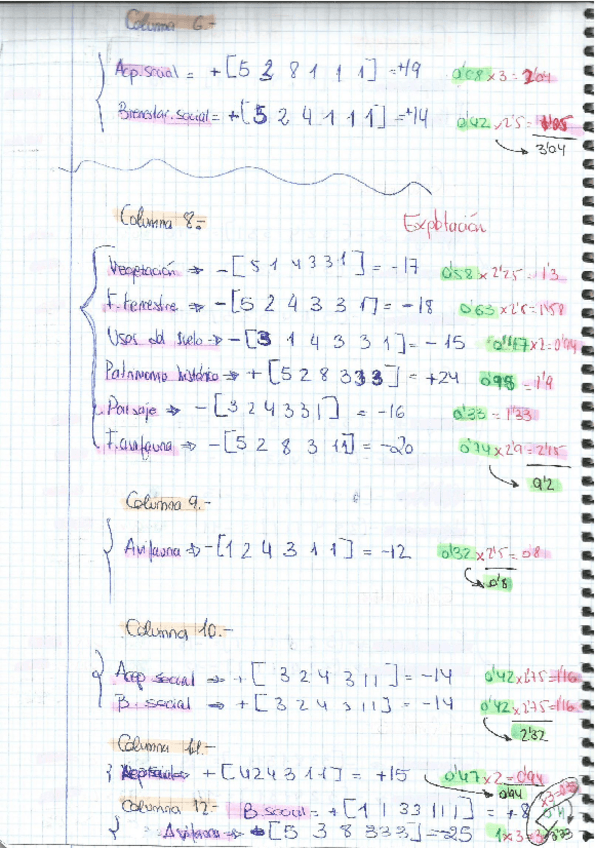 Columna 6.-
Acp. social = +[5 2 8 1 1 1] = +19 0'68 x3 = 2'04
Bienestar social = +[5 2 4 1 1 1] = +14 0'42 x2'5 = 1'05
3'04
Columna 8.- Explotación
Vegetación → -[5 1 4 3 3 1] = -17 0'58 x 2'25 = 1'3
F. terrestre → -[5 2 4 3 3 1] = -18 0'63 x 2'5 = 1'58
Usos del suelo → -[3 1 4 3 3 1] = -15 0'47 x2 = 0'94
Patrimonio histórico → +[5 2 8 3 3 3] = +24 0'95 = 1'9
Paisaje → -[3 2 4 3 3 1] = -16 0'33 = 1'33
F. avifauna → -[5 2 8 3 1 1] = -20 0'74 x 2'9 = 2'15
9'2
Columna 9.-
Avifauna → -[1 2 4 3 1 1] = -12 0'32 x 2'5 = 0'8
0'8
Columna 10.-
Acp social → +[3 2 4 3 1 1] = -14 0'42 x2'75 = 1'16
B. social → +[3 2 4 3 1 1] = -14 0'42 x2'75 = 1'16
2'32
Columna 11.-
+[4 2 4 3 1 1] = +15 0'47 x 2 = 0'94
0'94
Columna 12.- B. social = +[1 1 3 3 1 1 1] = +8
Avifauna → [5 3 8 3 3 3] = -25 1 x 3 = 3